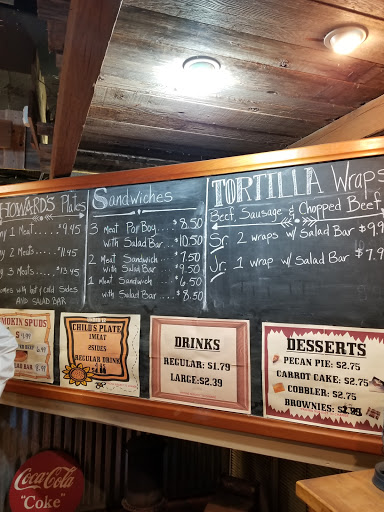 HOWARD'S Plates
1 Meat ..... $9.45
2 Meats ... $11.45
3 Meats ... $13.45
comes with hot & Cold Sides
AND SALAD BAR
Sandwiches
3 Meat Por Boy ... $8.50
with Salad Bar ... $10.50
2 Meat Sandwich ... $7.50
with Salad Bar ... $9.50
1 meat Sandwich $6.50
with Salad Bar ... $8.50
TORTILLA Wraps
Beef, Sausage & Chopped Beef,
Sr. 2 wraps w/ Salad Bar
Jr. 1 wrap w/ Salad Bar
SPUDS
CHILD'S PLATE
1MEAT
2SIDES
REGULAR DRINK
DRINKS
REGULAR: $1.79
LARGE: $2.39
DESSERTS
PECAN PIE: $2.75
CARROT CAKE: $2.75
COBBLER: $2.75
BROWNIES:
Coca-Cola
"Coke"